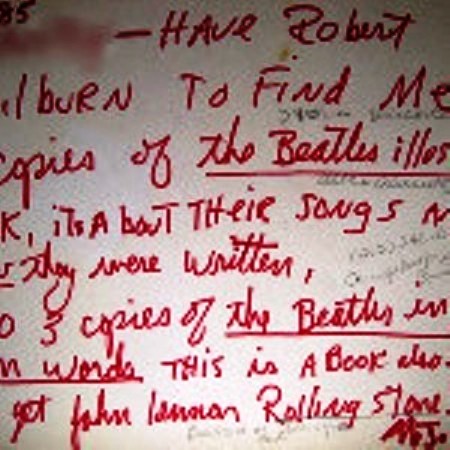 85
— HAVE Robert
ilburn To Find Me
copies of the Beatles illus
K, its About THeir songs n
they were written,
o 3 copies of the Beatles in
n words THIS is A Book also.
get John lennon Rolling Stone.
MJ.